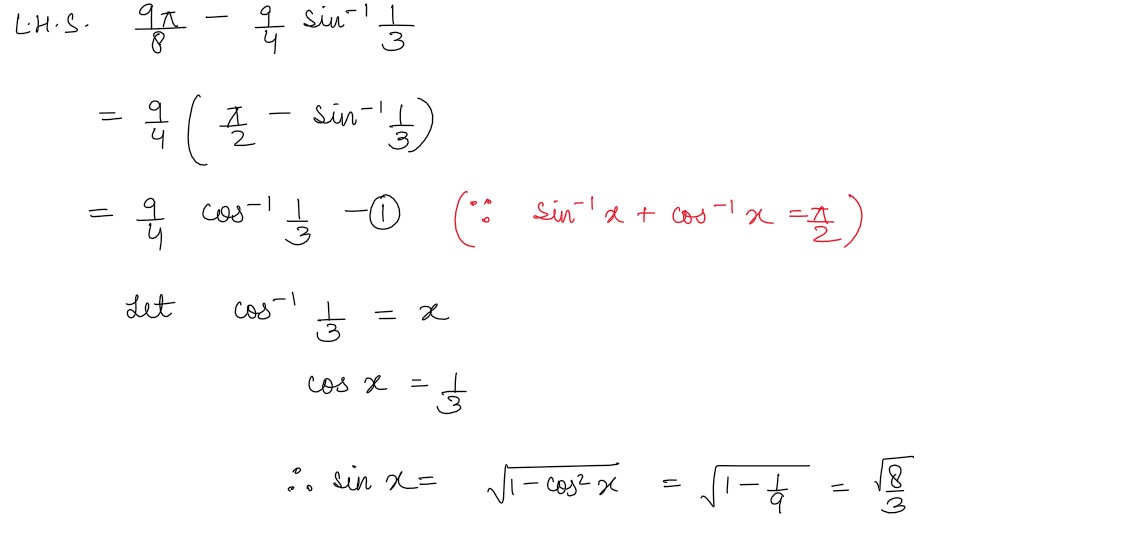 L.H.S. 9π/8 - 9/4 sin⁻¹ 1/3
= 9/4 (π/2 - sin⁻¹ 1/3)
= 9/4 cos⁻¹ 1/3 -① (∵ sin⁻¹ x + cos⁻¹ x = π/2)
Let cos⁻¹ 1/3 = x
cos x = 1/3
∴ sin x = √(1-cos² x) = √(1-1/9) = √8/3